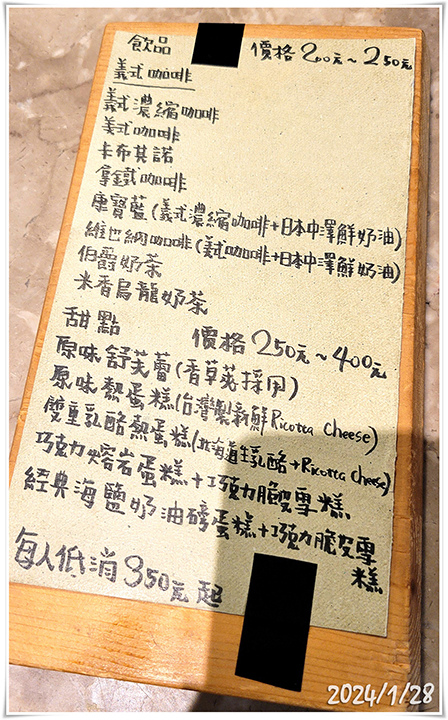 飲品 價格200元~250元
義式咖啡
義式濃縮咖啡
美式咖啡
卡布其諾
拿鐵咖啡
康寶藍(義式濃縮咖啡+日本中澤鮮奶油)
維也納咖啡(美式咖啡+日本中澤鮮奶油)
伯爵奶茶
米香烏龍奶茶
甜點 價格250元~400元
原味舒芙蕾(香草莢採用)
原味熱蛋糕(台灣製新鮮Ricotta Cheese)
雙重乳酪熱蛋糕(北海道生乳酪+Ricotta Cheese)
巧克力熔岩蛋糕+巧克力脆皮雪糕
經典海鹽奶油磅蛋糕+巧克力脆皮雪
糕
每人低消350元起
2024/1/28